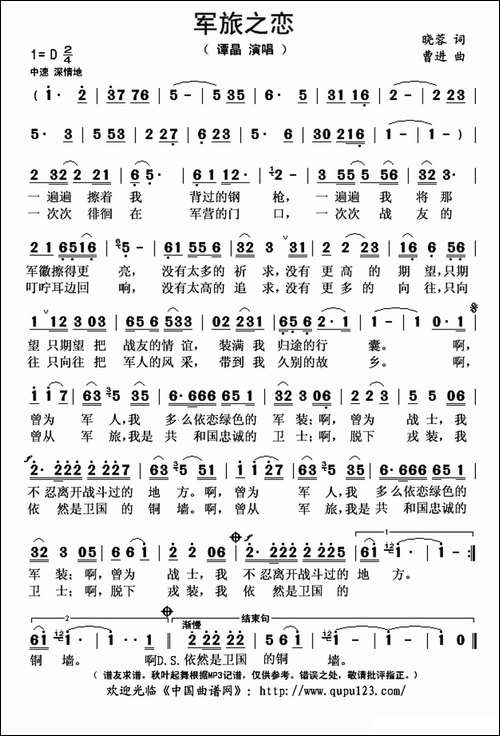 军旅之恋
（ 谭晶 演唱 ）
1= D 2/4
晓蓉 词
中速 深情地
曹进 曲
( 1· 2 | 37 76 | 5 - | 5 35 | 6 16 | 65 32 | 2 - | 2 23 |
5· 3 | 5 53 | 2 27 | 6 23 | 5 6· | 30 216 | 1 - | 1 - ) |
2 32 2 | 2 21 | 6 5· | 61 12· | 2 - | 3 55 5 | 56 5 | 32 3· |
一 遍遍 擦着 我 背过的钢 枪， 一 遍遍 我 将那
一 次次 徘徊 在 军营的门 口， 一 次次 战 友的
2 1 | 6516 | 3 - | 5 65 3 | 6516 | 32 3 | 3 31 | 2 21 | 6 56 |
军徽擦得更 亮， 没有太多的 祈 求，没有 更高 的 期望，只期
叮咛耳边回 响， 没有太高的 追 求，没有 更多 的 向往，只向
1 12 3 03 | 5 6 5 6 | 533 02 | 3 231 | 65 6 | 2·1 | 1 - | 1 0 5 |
望 只期望 把 战友的 情 谊， 装满 我 归途的行 囊。 啊，
往 只向往 把 军人的 风 采， 带到 我 久别的故 乡。 啊，
i i 7 | 63 5 | 35 | 6· 66 | 6 65 1 | 32 3 | 2 3 | 5 5 | 06 |
曾为 军 人，我 多么依恋绿色的 军 装；啊， 曾为 战士，我
曾从 军 旅，我是 共 和国忠诚的 卫 士；啊， 脱下 戎装，我
2· 22 | 2 2 27 | 63 5 | 5i | 6 5 | 63 5 | 35 | 6· 66 | 6 65 1 |
不 忍离开战斗过的 地 方。啊， 曾为 军 人，我 多么依恋绿色的
依 然是卫国的 铜 墙。啊， 曾从 军 旅，我是 共 和国忠诚的
32 3 | 3 05 | 6 6 i | i 06 | 2· 22 | 2 2 2 5 | 6i | i - | i - :||
军 装；啊，曾为 战 士，我 不 忍离开战斗过的 地 方。
卫 士；啊，脱下 戎 装，我 依 然是卫国的
渐慢 结束句
6i | i· | i - | i 5 || 2 2 2 2 | 2 2 5 | 6i | i - | i - | i - ||
铜 墙。 啊D.S.依然是卫国 的铜 墙。
（ 谱友求谱。秋叶起舞根据MP3记谱，仅供参考。错误之处，敬请批评指正。）
欢迎光临《中国曲谱网》：http://www.qupu123.com/